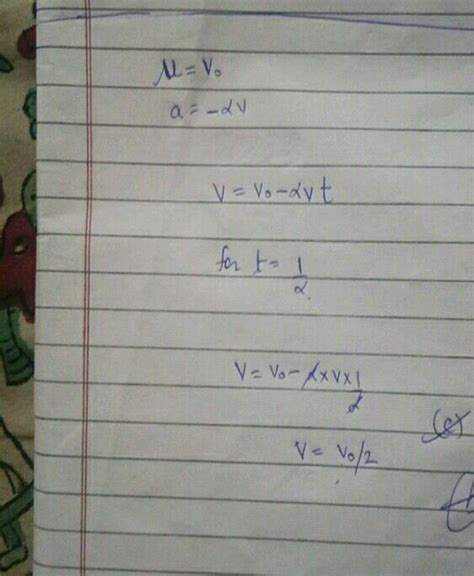 u = v₀
a = -αv
v = v₀ - αvt
for t = 1/α
v = v₀ - α×v×1/α
(c)
v = v₀/2